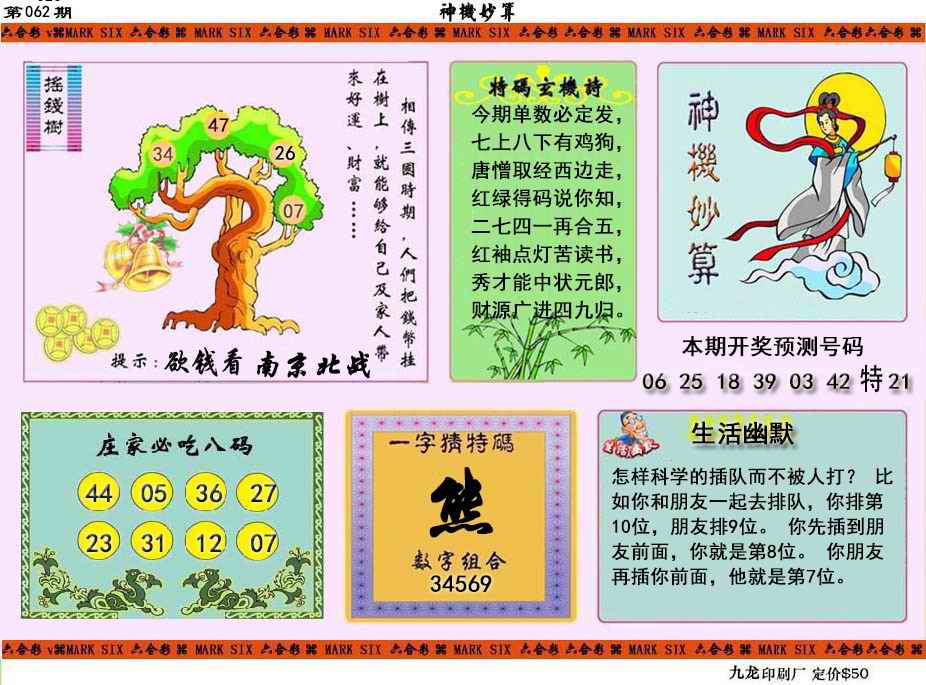 第062期
神機妙算
六合彩 MARK SIX 六合彩 MARK SIX 六合彩 MARK SIX 六合彩 MARK SIX 六合彩 六合彩 MARK SIX 六合彩 MARK SIX 六合彩 六合彩
搖錢樹
47
34
26
07
相傳三國時期，人們把錢幣挂
在樹上，就能够给自己及家人帶
來好運、財富……
提示：欲钱看 南京北战
特碼玄機詩
今期单数必定发，
七上八下有鸡狗，
唐憎取经西边走，
红绿得码说你知，
二七四一再合五，
红袖点灯苦读书，
秀才能中状元郎，
财源广进四九归。
神機妙算
本期开奖预测号码
06 25 18 39 03 42 特 21
庄家必吃八码
44 05 36 27
23 31 12 07
一字猜特碼
熊
数字组合
34569
生活幽默
生活幽默
怎样科学的插队而不被人打？ 比
如你和朋友一起去排队，你排第
10位，朋友排9位。 你先插到朋
友前面，你就是第8位。 你朋友
再插你前面，他就是第7位。
六合彩 MARK SIX 六合彩 MARK SIX 六合彩 MARK SIX 六合彩 MARK SIX 六合彩 六合彩 MARK SIX 六合彩 MARK SIX 六合彩 六合彩
九龙印刷厂 定价$50